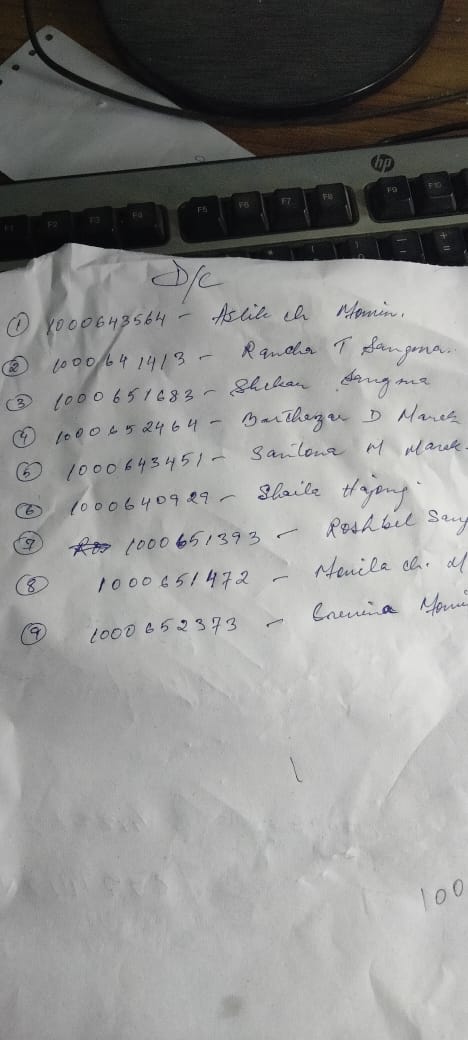 hp
F1 F2 F3 F4 F5 F6 F7 F8 F9 F10
D/C
① 1000643564 - Aslile ch Momin.
② 1000641413 - Rancha T Sangma.
③ 1000651683 - Sangma
④ 1000652464 - D Marek
⑤ 1000643451 - M Marak.
⑥ 1000640929 - Shaila Hajong
⑦ 1000651393 - Roshbel Sang
⑧ 1000651472 - Monila ch. M
⑨ 1000652373 - Momi
100